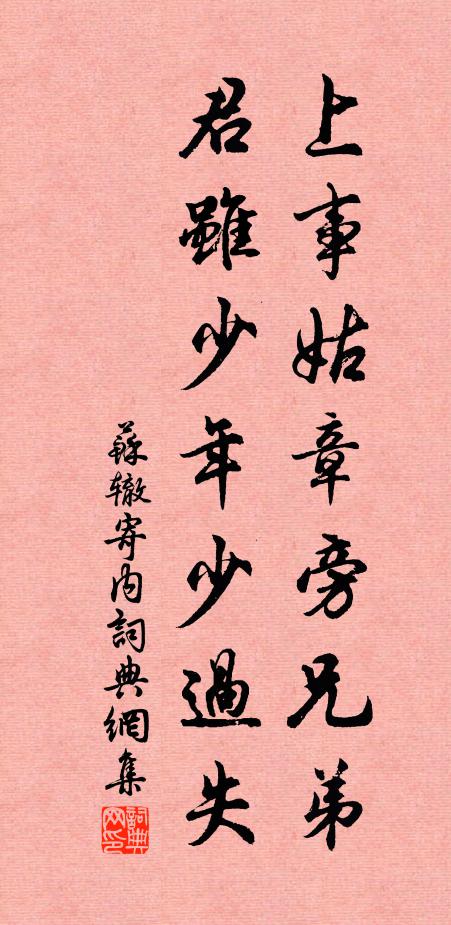 上事姑章旁兄弟
君雖少年少過失
蘇辙寄内詞典網集
詞典网印